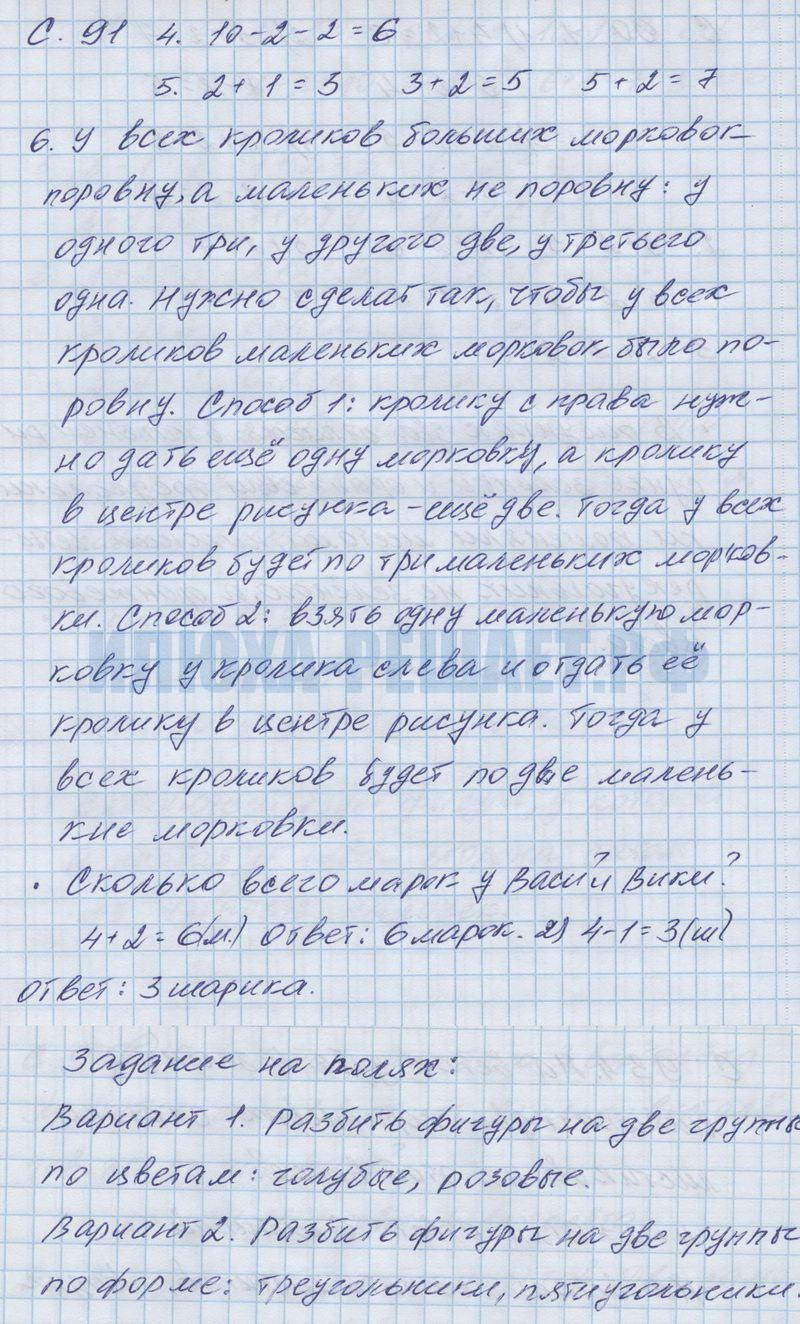 С. 91 4. 10-2-2=6
5. 2+1=3 3+2=5 5+2=7
6. У всех кроликов больших морковок
поровну, а маленьких не поровну: у
одного три, у другого две, у третьего
одна. Нужно сделат так, чтобы у всех
кроликов маленьких морковок было по-
ровну. Способ 1: кролику с права нуж-
но дать ещё одну морковку, а кролику
в центре рисунка - ещё две. Тогда у всех
кроликов будет по три маленьких морков-
ки. Способ 2: взять одну маленькую мор-
ковку у кролика слева и отдать её
ИЛЮХА-РЕШАЕТ.РФ
кролику в центре рисунка. Тогда у
всех кроликов будет по две малень-
кие морковки.
. Сколько всего марок у Васи? и Вики?
4+2=6(м.) Ответ: 6 марок. 2) 4-1=3(ш)
Ответ: 3 шарика.
Задание на полях:
Вариант 1. Разбить фигуры на две группы
по цветам: голубые, розовые.
Вариант 2. Разбить фигуры на две группы
по форме: треугольники, пятиугольники.